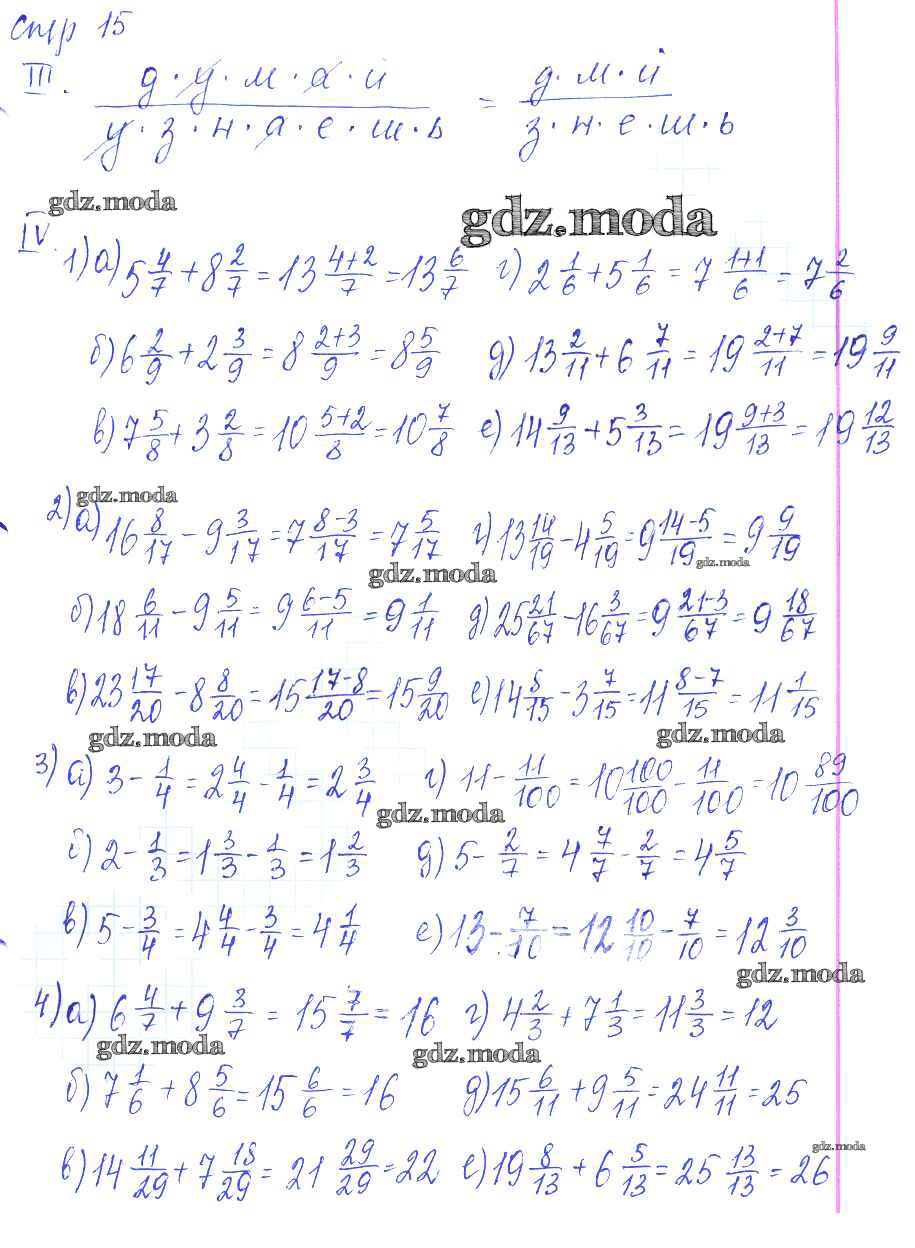 стр 15
III. д·у·м·а·й / у·з·н·а·е·ш·ь = д·м·й / з·н·е·ш·ь
gdz.moda gdz.moda
IV. 1) а) 5 4/7 + 8 2/7 = 13 (4+2)/7 = 13 6/7 г) 2 1/6 + 5 1/6 = 7 (1+1)/6 = 7 2/6
б) 6 2/9 + 2 3/9 = 8 (2+3)/9 = 8 5/9 д) 13 2/11 + 6 7/11 = 19 (2+7)/11 = 19 9/11
в) 7 5/8 + 3 2/8 = 10 (5+2)/8 = 10 7/8 е) 14 9/13 + 5 3/13 = 19 (9+3)/13 = 19 12/13
gdz.moda
2) а) 16 8/17 - 9 3/17 = 7 (8-3)/17 = 7 5/17 г) 13 14/19 - 4 5/19 = 9 (14-5)/19 = 9 9/19
gdz.moda gdz.moda
б) 18 6/11 - 9 5/11 = 9 (6-5)/11 = 9 1/11 д) 25 21/67 - 16 3/67 = 9 (21-3)/67 = 9 18/67
в) 23 17/20 - 8 8/20 = 15 (17-8)/20 = 15 9/20 е) 14 8/15 - 3 7/15 = 11 (8-7)/15 = 11 1/15
gdz.moda gdz.moda
3) а) 3 - 1/4 = 2 4/4 - 1/4 = 2 3/4 г) 11 - 11/100 = 10 100/100 - 11/100 = 10 89/100
gdz.moda
б) 2 - 1/3 = 1 3/3 - 1/3 = 1 2/3 д) 5 - 2/7 = 4 7/7 - 2/7 = 4 5/7
в) 5 - 3/4 = 4 4/4 - 3/4 = 4 1/4 е) 13 - 7/10 = 12 10/10 - 7/10 = 12 3/10
gdz.moda
4) а) 6 4/7 + 9 3/7 = 15 7/7 = 16 г) 4 2/3 + 7 1/3 = 11 3/3 = 12
gdz.moda gdz.moda
б) 7 1/6 + 8 5/6 = 15 6/6 = 16 д) 15 6/11 + 9 5/11 = 24 11/11 = 25
gdz.moda
в) 14 11/29 + 7 18/29 = 21 29/29 = 22 е) 19 8/13 + 6 5/13 = 25 13/13 = 26